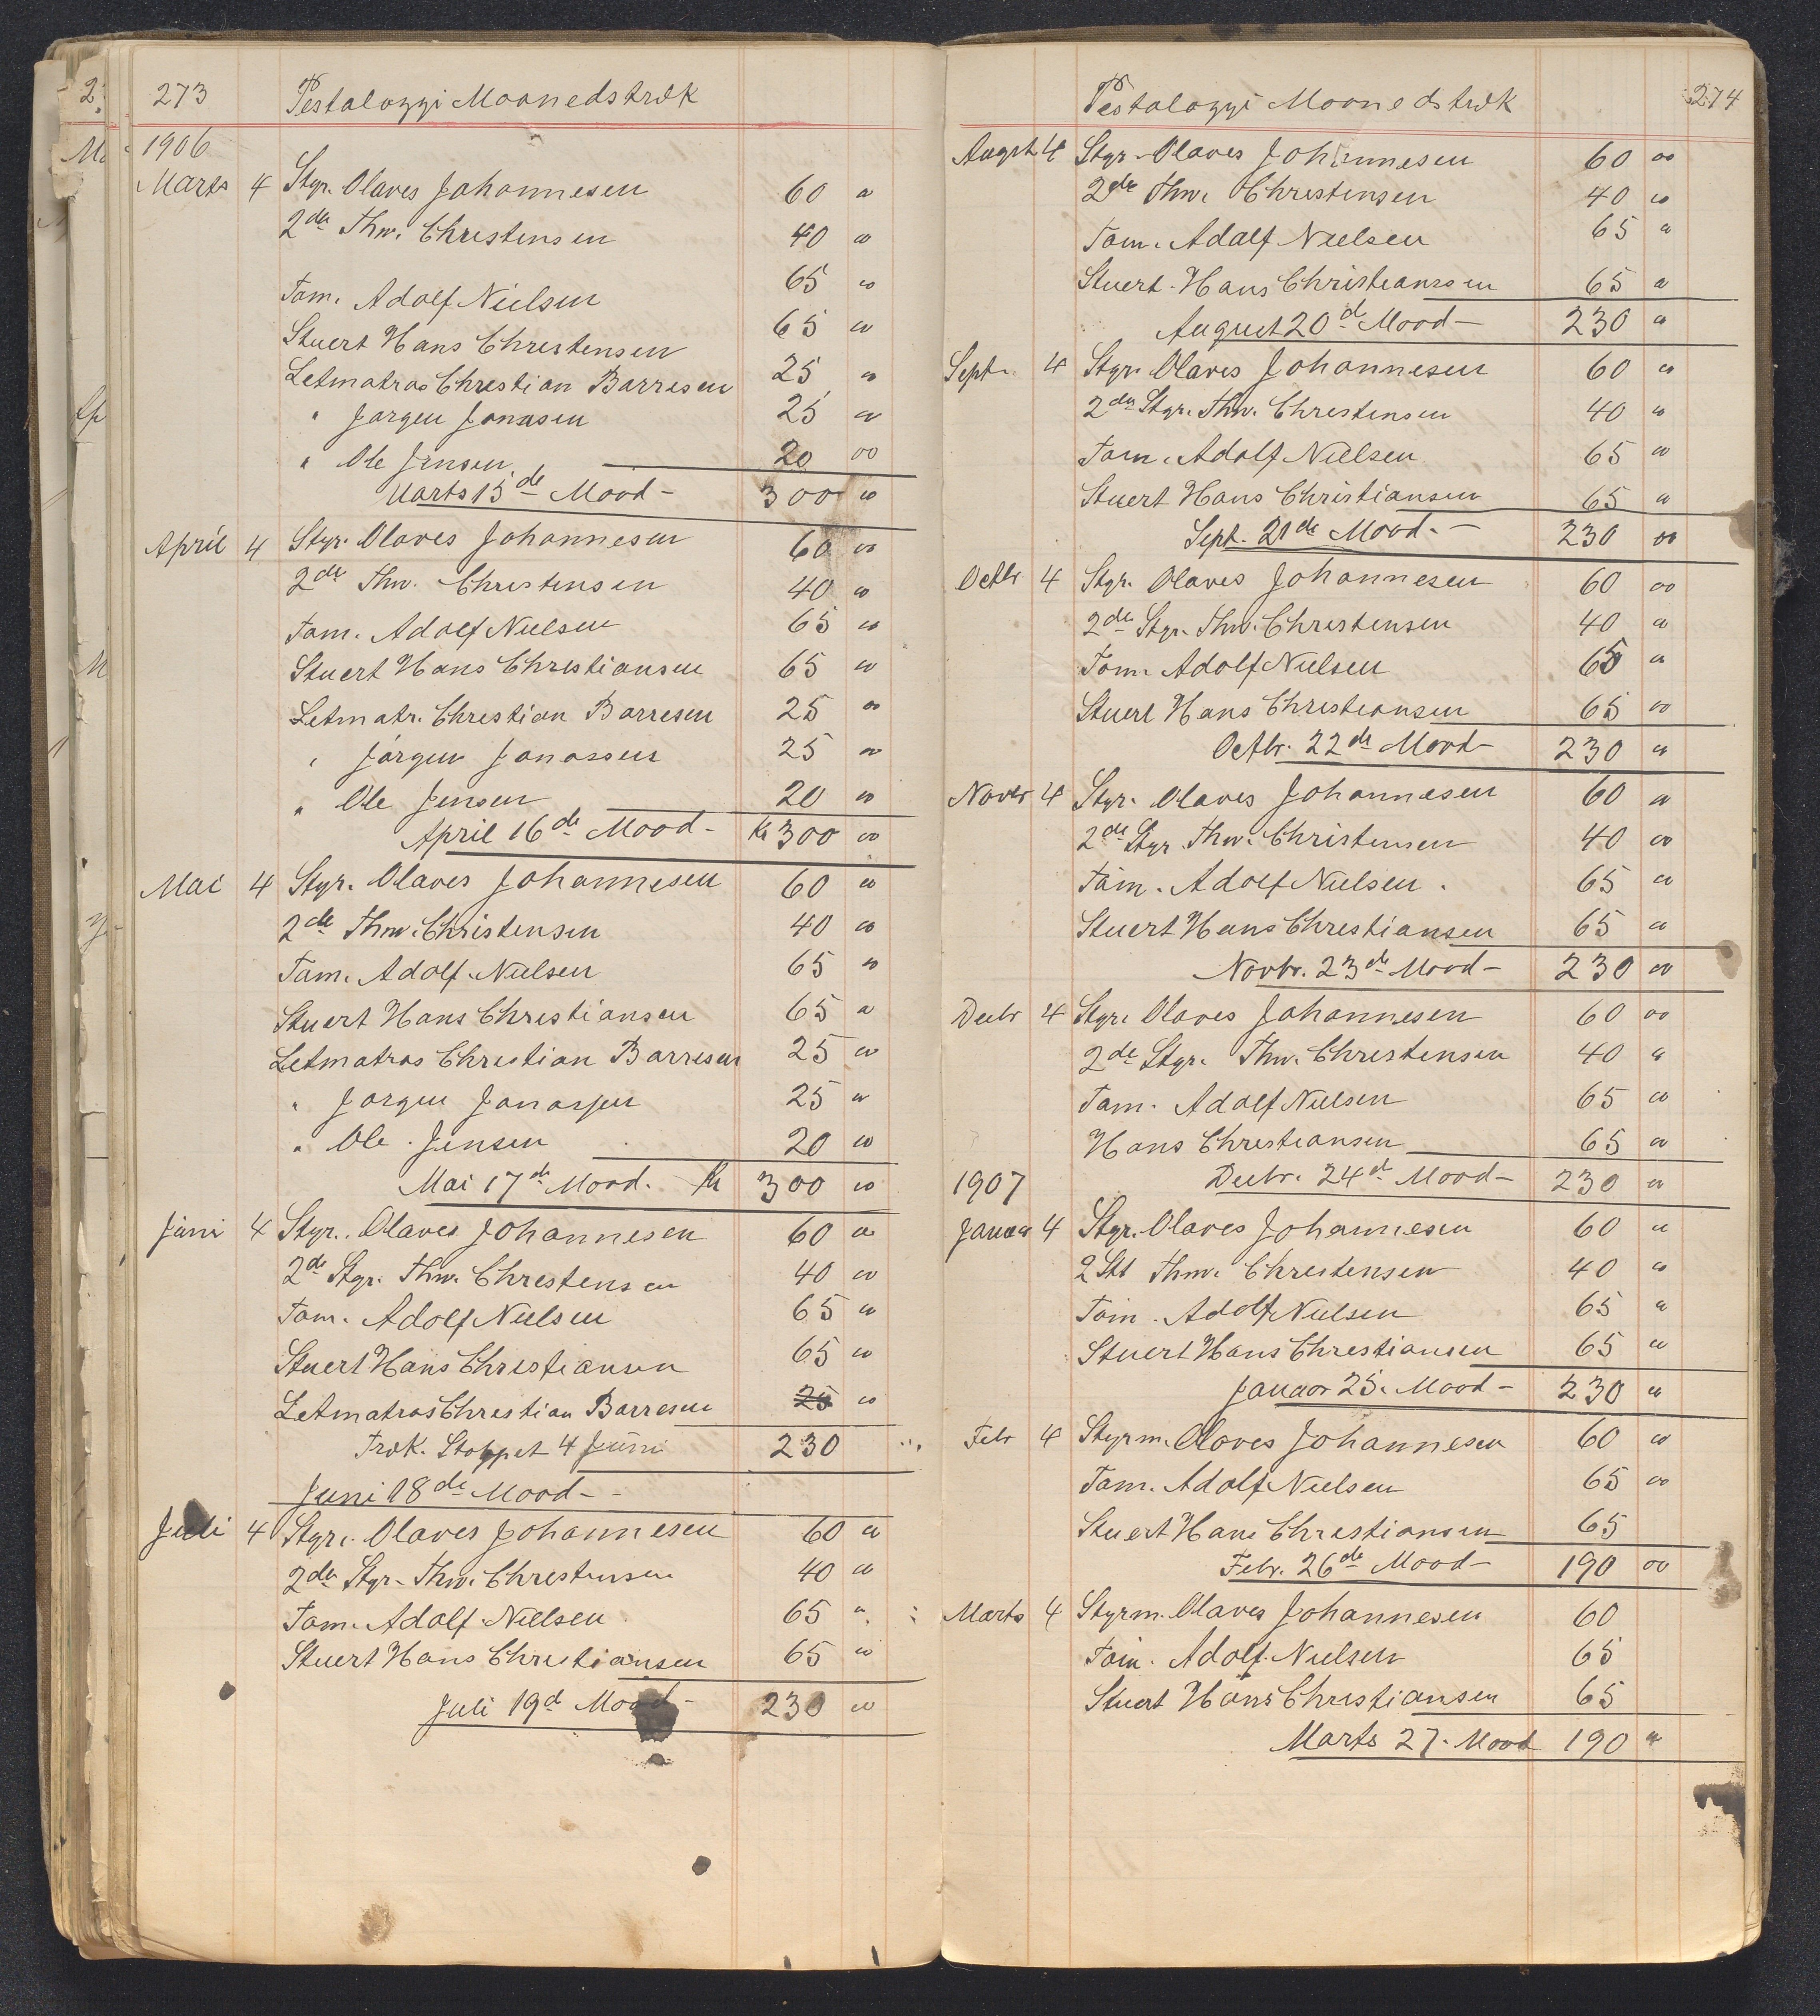 273 Pestalozzi Maanedstræk
1906
Marts 4 Styr. Olaves Johannesen 60 00
2den Thw. Christensen 40 00
Tøm. Adolf Nielsen 65 00
Stuert Hans Christensen 65 00
Letmatros Christian Borresen 25 00
" Jørgen Jonasen 25 00
" Ole Jensen 20 00
Marts 15de Maad- 300 00
April 4 Styr. Olaves Johannesen 60 00
2de Thw. Christensen 40 00
Tøm. Adolf Nielsen 65 00
Stuert Hans Christiansen 65 00
Letmatr. Christian Borresen 25 00
" Jörgen Jonassen 25 00
" Ole Jensen 20 00
April 16de Maad- Kr 300 00
Mai 4 Styr. Olaves Johannesen 60 00
2de Thw. Christensen 40 00
Tøm. Adolf Nielsen 65 00
Stuert Hans Christiansen 65 00
Letmatros Christian Borresen 25 00
" Jørgen Jonassen 25 00
" Ole Jensen 20 00
Mai 17de Maad. Kr 300 00
Juni 4 Styr. Olaves Johannesen 60 00
2de Styr. Thw. Christensen 40 00
Tøm. Adolf Nielsen 65 00
Stuert Hans Christiansen 65 00
Letmatros Christian Borresen 25 00
Træk. Stoppet 4 Juni 230
Juni 18de Maad-
Juli 4 Styr. Olaves Johannesen 60 00
2de Styr. Thw. Christensen 40 00
Tøm. Adolf Nielsen 65 00
Stuert Hans Christiansen 65 00
Juli 19d Maad- 230 00
Pestalozzi Maanedstræk 274
August 4 Styr. Olaves Johannesen 60 00
2de Thw. Christensen 40 00
Tøm. Adolf Nielsen 65 00
Stuert. Hans Christiansen 65 00
August 20d Maad- 230 00
Sept. 4 Styr. Olaves Johannesen 60 00
2den Styr. Thw. Christensen 40 00
Tøm. Adolf Nielsen 65 00
Stuert Hans Christiansen 65 00
Sept. 21de Maad.- 230 00
Octbr 4 Styr. Olaves Johannesen 60 00
2de Styr. Thw. Christensen 40 00
Tøm. Adolf Nielsen 65 00
Stuert Hans Christiansen 65 00
Octbr. 22de Maad- 230 00
Novbr 4 Styr. Olaves Johannesen 60 00
2de Styr. Thw. Christensen 40 00
Tøm. Adolf Nielsen. 65 00
Stuert Hans Christiansen 65 00
Novbr. 23de Maad- 230 00
Decbr 4 Styr. Olaves Johannesen 60 00
2de Styr. Thw. Christensen 40 00
Tøm. Adolf Nielsen 65 00
Hans Christiansen 65 00
Decbr. 24d Maad- 230 00
1907
Januar 4 Styr. Olaves Johannesen 60 00
2 Thw. Christensen 40 00
Tøm. Adolf Nielsen 65 00
Stuert Hans Christiansen 65 00
Januar 25. Maad- 230 00
Febr 4 Styrm. Olaves Johannesen 60 00
Tøm. Adolf Nielsen 65 00
Stuert Hans Christiansen 65
Febr. 26de Maad- 190 00
Marts 4 Styrm. Olaves Johannesen 60
Tøm. Adolf Nielsen 65
Stuert Hans Christiansen 65
Marts 27. Maad 190 00